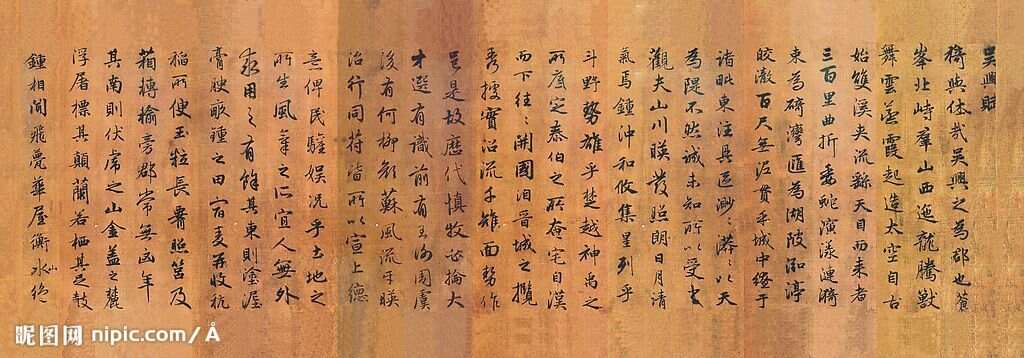 吳興賦
猗與休哉吳興之為郡也蒼
峯北峙羣山西迤龍騰獸
舞雲蒸霞起造太空自古
始雙溪夾流繇天目而來者
三百里曲折委蛇演漾漣漪
束為碕灣匯為湖陂泓渟
皎澈百尺無泥貫乎城中繚于
諸毗東注具區渺〻漭〻以天
為隄不然誠未知所以受之
觀夫山川暎發照朗日月清
氣焉鍾沖和攸集星列乎
斗野勢雄乎楚越神禹之
所底定泰伯之所奄宅自漢
而下往〻開國洎晉城之攬
秀據實沿流千雉面勢作
邑是故歷代慎牧必掄大
才選有識前有王謝周虞
後有何柳顏蘇風流互暎
治行同符皆所以宣上德
意俾民驩娛況乎土地之
所生風氣之所宜人無外
求用之有餘其東則塗泥
膏腴畝鍾之田宿麦再收秔
稻所便玉粒長腰照筥及
箱轉輸旁郡常無凶年
其南則伏虎之山金蓋之麓
浮屠標其顛蘭若棲其足鼓
鍾相聞飛甍華屋衡山水絕
昵图网 nipic.com/Å